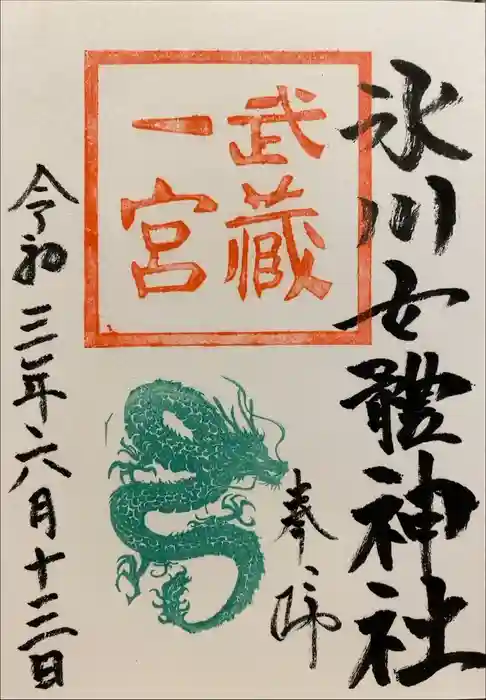 氷川女體神社
奉拝
武蔵
一宮
令和三年六月十三日